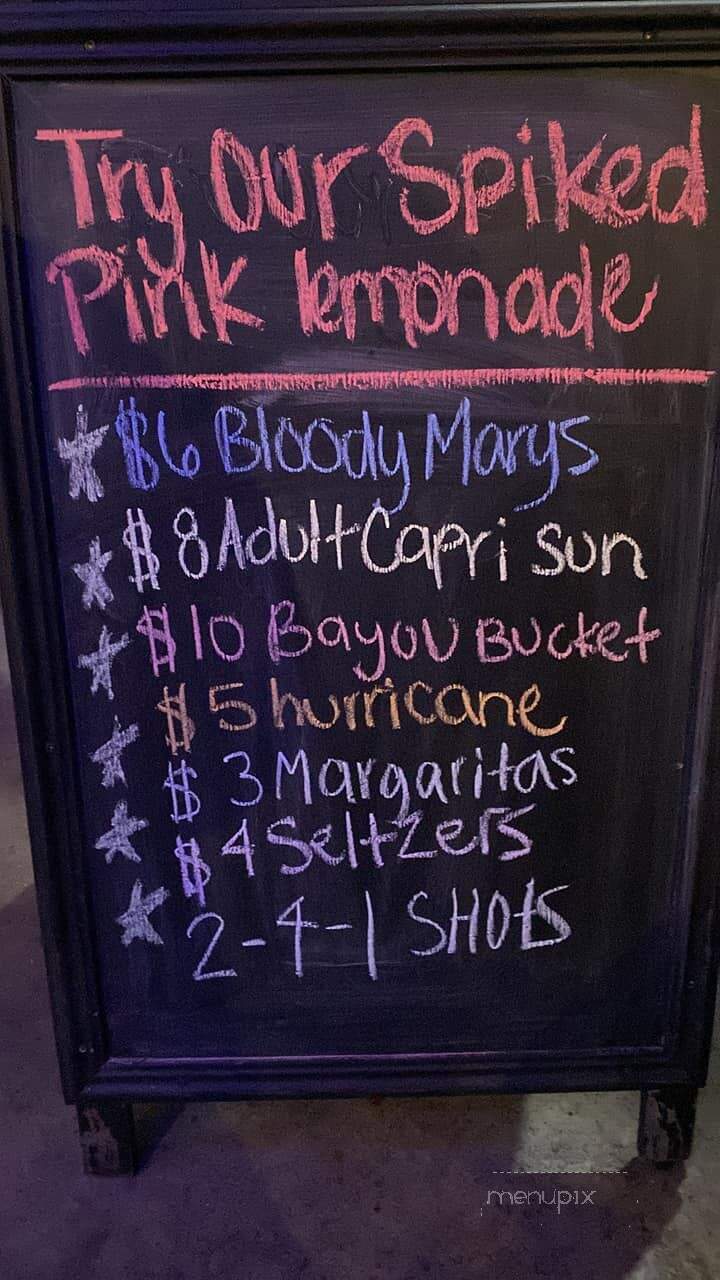 Try Our Spiked
Pink lemonade
$6 Bloody Marys
$8 Adult Capri Sun
$10 Bayou Bucket
$5 hurricane
$3 Margaritas
$4 Seltzers
2-4-1 SHOtS
menupix